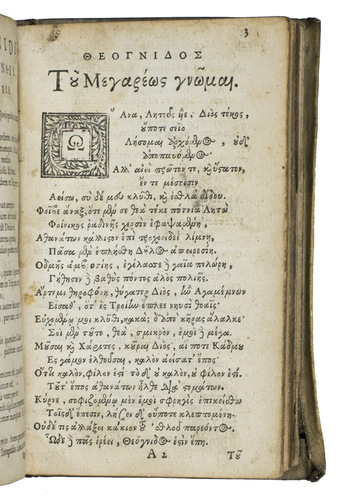 3
ΘΕΟΓΝΙΔΟΣ
Τοῦ Μεγαρέως γνῶμαι.
Ω Ἄνα, Λητοῦς ὑιὲ, Διὸς τέκος,
οὔποτε σεῖο
Λήσομαι ἀρχόμενος, οὐδ'
ἀποπαυόμενος.
Ἀλλ' αἰεὶ πρῶτόν τε, καὶ ὕστατον,
ἔν τε μέσοισιν
Ἀείσω, σὺ δέ μου κλῦθι, καὶ ἐσθλὰ δίδου.
Φοῖβε ἄναξ, ὅτε μέν σε θεὰ τέκε πότνια Λητὼ
Φοίνικος ῥαδινῆς χερσὶν ἐφαψαμένη,
Ἀθανάτων κάλλιστον ἐπὶ τροχοειδέϊ λίμνῃ,
Πᾶσα μὲν ἐπλήσθη Δῆλος ἀπειρεσίη
Ὀδμῆς ἀμβροσίης, ἐγέλασσε δὲ γαῖα πελώρη,
Γήθησεν δὲ βαθὺς πόντος ἁλὸς πολιῆς.
Ἄρτεμι θηροφόνη, θύγατερ Διὸς, ἣν Ἀγαμέμνων
Εἵσαθ', ὅτ' ἐς Τροίην ἔπλεε νηυσὶ θοαῖς·
Εὐχομένῳ μοι κλῦθι, κακὰς δ' ἀπὸ κῆρας ἄλαλκε·
Σοὶ μὲν τοῦτο, θεὰ, σμικρὸν, ἐμοὶ δὲ μέγα.
Μοῦσαι καὶ Χάριτες, κοῦραι Διὸς, αἵ ποτε Κάδμου
Ἐς γάμον ἐλθοῦσαι, καλὸν ἀείσατ' ἔπος·
Ὅττι καλὸν, φίλον ἐστὶ· τὸ δ' οὐ καλὸν, οὐ φίλον ἐστί.
Τοῦτ' ἔπος ἀθανάτων ἦλθε διὰ στομάτων.
Κύρνε, σοφιζομένῳ μὲν ἐμοὶ σφρηγὶς ἐπικείσθω
Τοῖσδ' ἔπεσιν, λήσει δ' οὔποτε κλεπτόμενα.
Οὐδέ τις ἀλλάξει κάκιον τοὐσθλοῦ παρεόντος.
Ὧδε δὲ πᾶς ἐρέει, Θεόγνιδός ἐστιν ἔπη.
A 2 Τοῦ